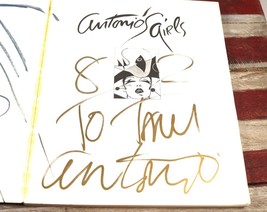 Antonio's Girls
TO
Antonio